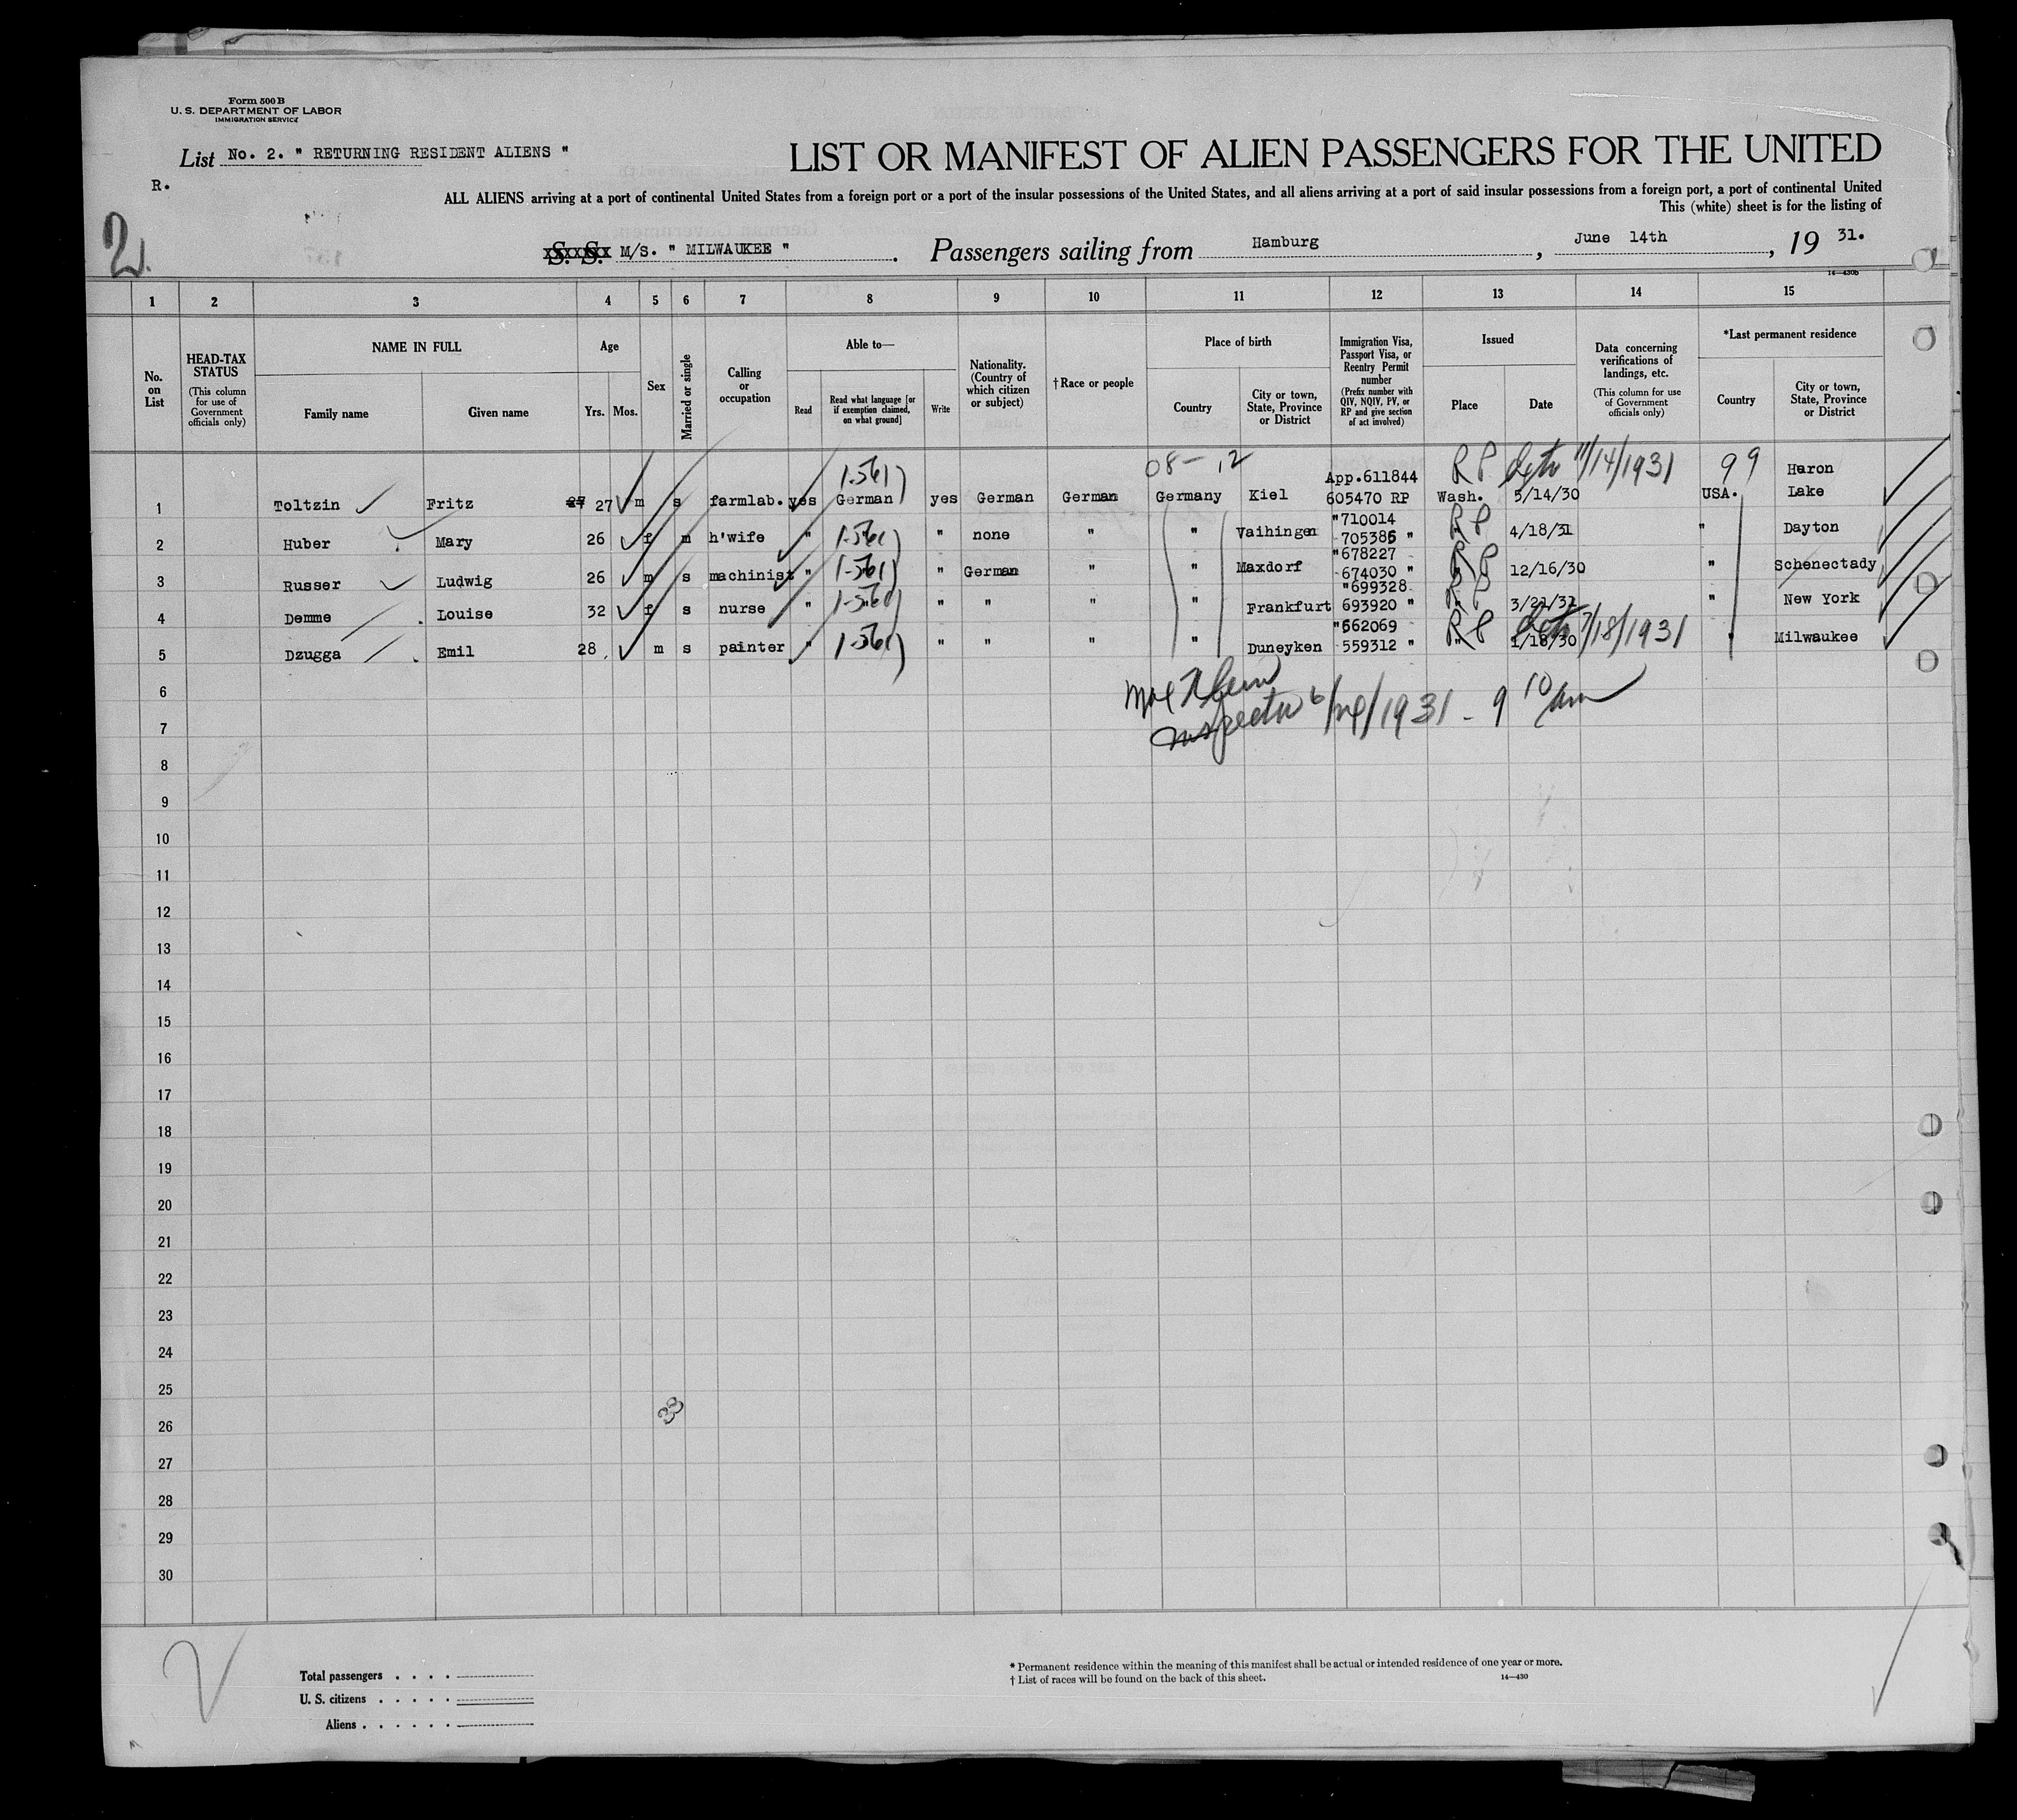 Form 500 B
U. S. DEPARTMENT OF LABOR
IMMIGRATION SERVICE
List No. 2. " RETURNING RESIDENT ALIENS "
R.
2.
LIST OR MANIFEST OF ALIEN PASSENGERS FOR THE UNITED
ALL ALIENS arriving at a port of continental United States from a foreign port or a port of the insular possessions of the United States, and all aliens arriving at a port of said insular possessions from a foreign port, a port of continental United
This (white) sheet is for the listing of
S. S. M/S. " MILWAUKEE " . Passengers sailing from Hamburg , June 14th , 19 31.
14—430b
1 2 3 4 5 6 7 8 9 10 11 12 13 14 15
No. on List
HEAD-TAX STATUS (This column for use of Government officials only)
NAME IN FULL
Family name Given name
Age
Yrs. Mos.
Sex
Married or single
Calling or occupation
Able to—
Read Read what language [or if exemption claimed, on what ground] Write
Nationality. (Country of which citizen or subject)
†Race or people
Place of birth
Country City or town, State, Province or District
Immigration Visa, Passport Visa, or Reentry Permit number (Prefix number with QIV, NQIV, PV, or RP and give section of act involved)
Issued
Place Date
Data concerning verifications of landings, etc. (This column for use of Government officials only)
*Last permanent residence
Country City or town, State, Province or District
1-561) 08-12 App.611844 RP 11/14/1931 99 Haron
1 Toltzin Fritz 27 27 m s farmlab. yes German yes German German Germany Kiel 605470 RP Wash. 5/14/30 USA. Lake
"710014 RP
2 Huber Mary 26 f m h'wife " 1-561) " none " " Vaihingen 705385 " " 4/18/31 " Dayton
"678227 RP
3 Russer Ludwig 26 m s machinist " 1-561) " German " " Maxdorf 674030 " 12/16/30 " Schenectady
"699328 RP
4 Demme Louise 32 f s nurse " 1-561) " " " " Frankfurt 693920 " 3/21/31 " New York
"562069 RP 7/18/1931
5 Dzugga Emil 28 m s painter " 1-561) " " " " Duneyken 559312 " " 1/18/30 " Milwaukee
6
Inspector 6/24/1931 - 9 10 am
7
8
9
10
11
12
13
14
15
16
17
18
19
20
21
22
23
24
25
33
26
27
28
29
30
Total passengers . . . .
U. S. citizens . . . . .
Aliens . . . . . .
* Permanent residence within the meaning of this manifest shall be actual or intended residence of one year or more.
† List of races will be found on the back of this sheet.
14—430